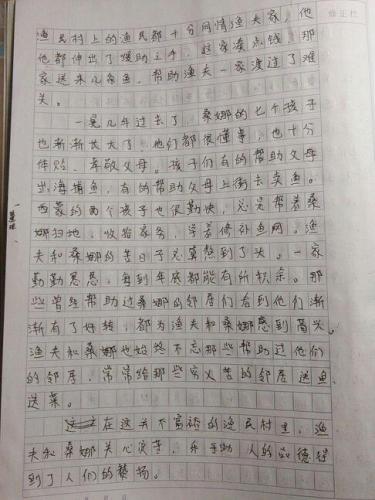 渔民村上的渔民都十分同情渔夫家,他
他都伸出了援助之手,这家凑点钱,那
家送来几条鱼,帮助渔夫一家渡过了难
关。
一晃几年过去了,桑娜的七个孩子
也渐渐长大了,他们都很懂事,也十分
体贴、孝敬父母。孩子们有的帮助父母
出海捕鱼,有的帮助父母上街去卖鱼。
西蒙的两个孩子也很勤快,总是帮着桑
娜扫地、收拾家务,学着修补鱼网。渔
夫和桑娜的苦日子总算熬到了头。一家
勤勤恳恳,每到年底都能有所积余。那
些曾经帮助过桑娜的邻居们看到他们渐
渐有了好转,都为渔夫和桑娜感到高兴。
渔夫和桑娜也始终不忘那些帮助过他们
的邻居,常常给那些穷人苦的邻居送鱼
送菜。
在这共不富裕的渔民村里,渔
夫和桑娜关心穷苦、乐于助人的品德得
到了人们的赞扬。